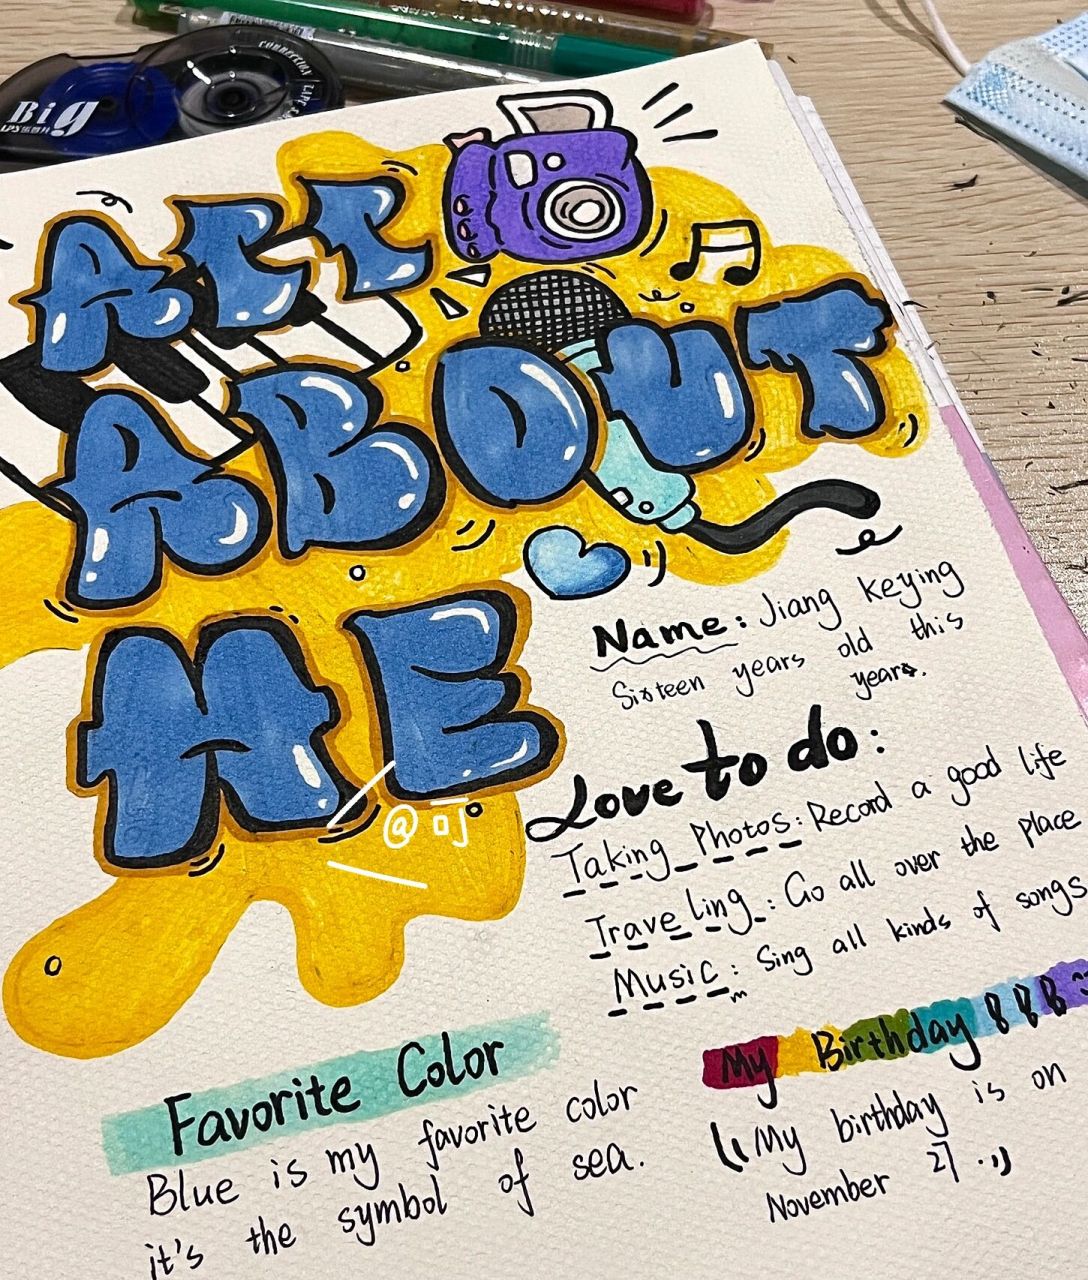 Big
CORRECTION TAPE
ALL
ABOUT
ME
Name: Jiang keying
Sixteen years old this
year.
Love to do:
Taking Photos: Record a good life
Traveling: Go all over the place
Music: Sing all kinds of songs
@의
Favorite Color
Blue is my favorite color
it's the symbol of sea.
My Birthday
My birthday is on
November 27.